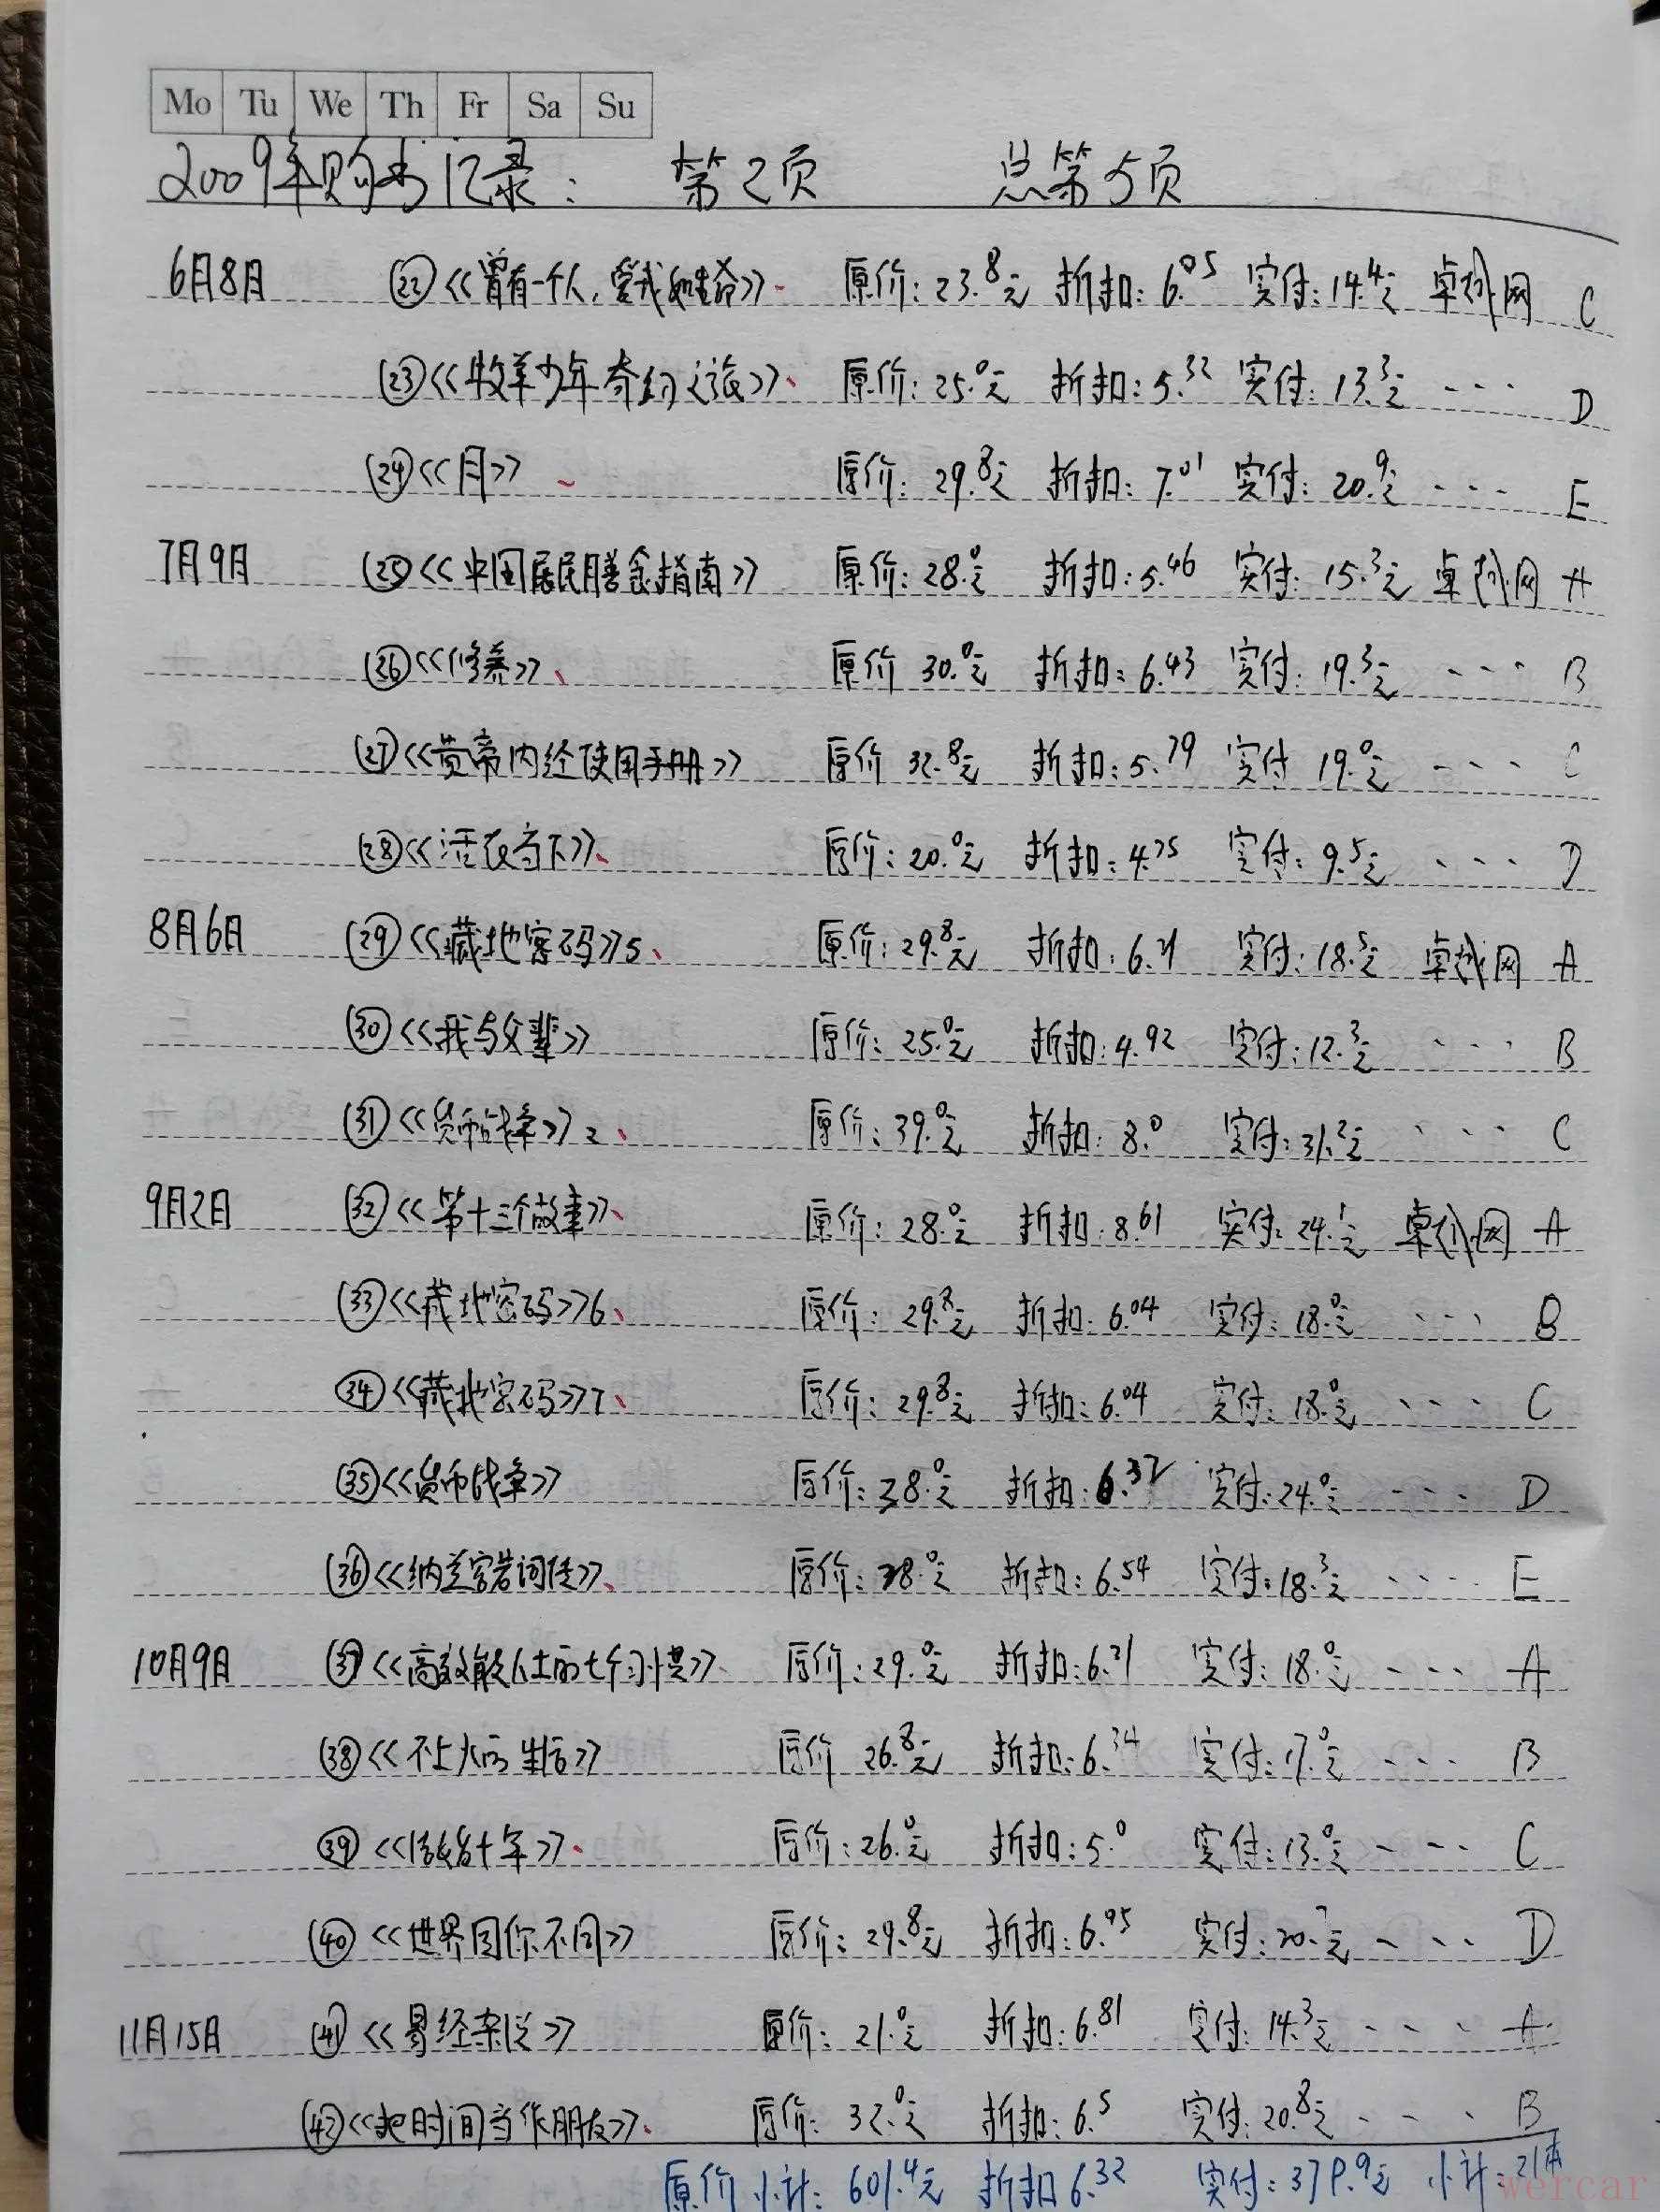 Mo Tu We Th Fr Sa Su
2009年购书记录: 第2页 总第5页
6月8日 ㉒《曾有一个人,爱我如生命》 原价:23.8元 折扣:6.05 实付:14.4元 卓越网 C
㉓《牧羊少年奇幻之旅》、 原价:25.0元 折扣:5.32 实付:13.3元 --- D
㉔《月》 原价:29.8元 折扣:7.01 实付:20.9元 --- E
7月9日 ㉕《中国居民膳食指南》 原价:28.0元 折扣:5.46 实付:15.3元 卓越网 A
㉖《修养》、 原价 30.0元 折扣:6.43 实付:19.3元 --- B
㉗《黄帝内经使用手册》 原价 32.8元 折扣:5.79 实付 19.0元 --- C
㉘《活在当下》、 原价:20.0元 折扣:4.75 实付:9.5元 --- D
8月6日 ㉙《藏地密码》5、 原价:29.8元 折扣:6.21 实付:18.5元 卓越网 A
㉚《我与父辈》 原价:25.0元 折扣:4.92 实付:12.3元 --- B
㉛《货币战争》2、 原价:39.0元 折扣:8.0 实付:31.2元 --- C
9月2日 ㉜《第十三个故事》、 原价:28.0元 折扣:8.61 实付:24.1元 卓越网 A
㉝《藏地密码》6、 原价:29.8元 折扣:6.04 实付:18.0元 --- B
㉞《藏地密码》7、 原价:29.8元 折扣:6.04 实付:18.0元 --- C
㉟《货币战争》 原价:38.0元 折扣:6.32 实付:24.0元 --- D
㊱《纳兰容若词传》、 原价:28.0元 折扣:6.54 实付:18.3元 ---- E
10月9日 ㊲《高效能人士的七个习惯》、 原价:29.0元 折扣:6.21 实付:18.0元 --- A
㊳《不上火的生活》 原价 26.8元 折扣:6.34 实付:17.0元 --- B
㊴《十年》、 原价:26.0元 折扣:5.0 实付:13.0元 --- C
㊵《世界因你不同》 原价:29.8元 折扣:6.95 实付:20.7元 --- D
11月15日 ㊶《易经杂说》 原价:21.0元 折扣:6.81 实付:14.3元 ---- A
㊷《把时间当作朋友》、 原价:32.0元 折扣:6.5 实付:20.8元 --- B
原价小计:601.4元 折扣6.32 实付:379.9元 小计:21本
wercar